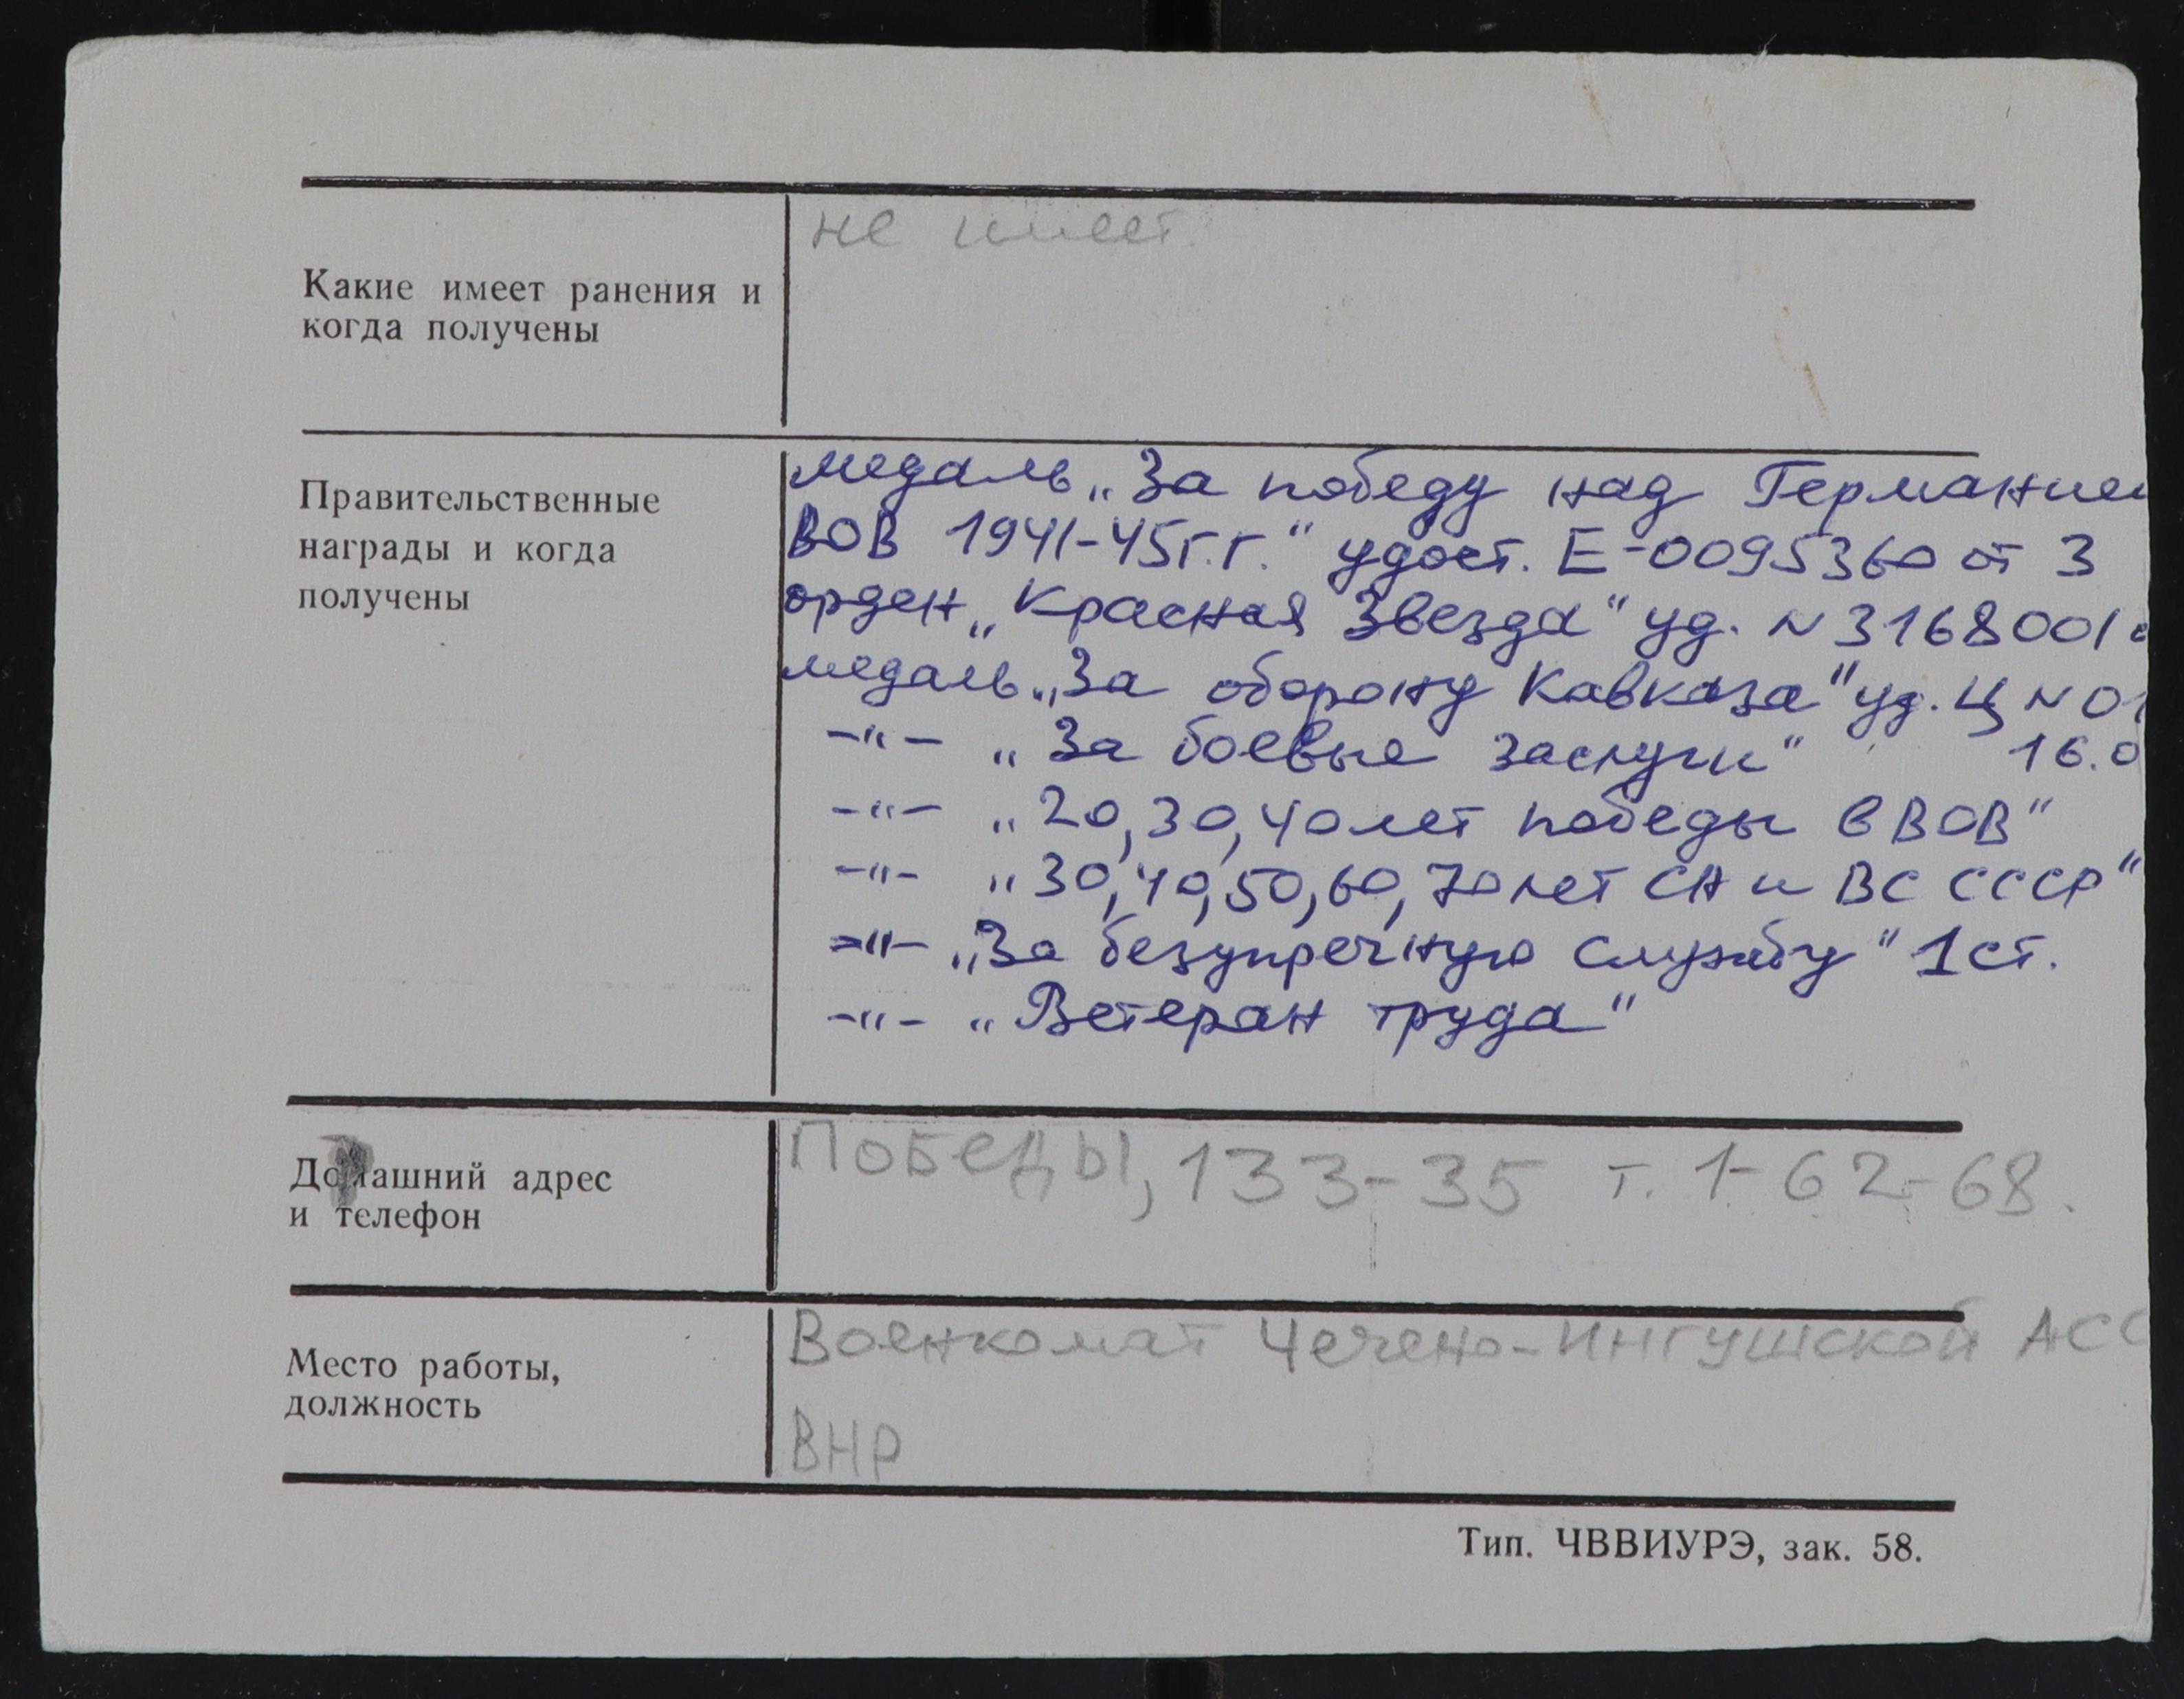 не имеет
Какие имеет ранения и
когда получены
Правительственные
награды и когда
получены
медаль „За победу над Германией
ВОВ 1941-45г.г." удост. Е-0095360 от 3
орден „Красная Звезда" уд. N 3168001
медаль „За оборону Кавказа" уд. Ц N 0
-"- „За боевые заслуги" 16.0
-"- „20,30,40лет победы в ВОВ"
-"- „30,40,50,60,70лет СА и ВС СССР"
-"- „За безупречную службу" 1 ст.
-"- „Ветеран труда"
Домашний адрес
и телефон
ПОБЕДЫ, 133-35 т. 1-62-68.
Место работы,
должность
Военкомат Чечено-Ингушской АСС
ВНР
Тип. ЧВВИУРЭ, зак. 58.